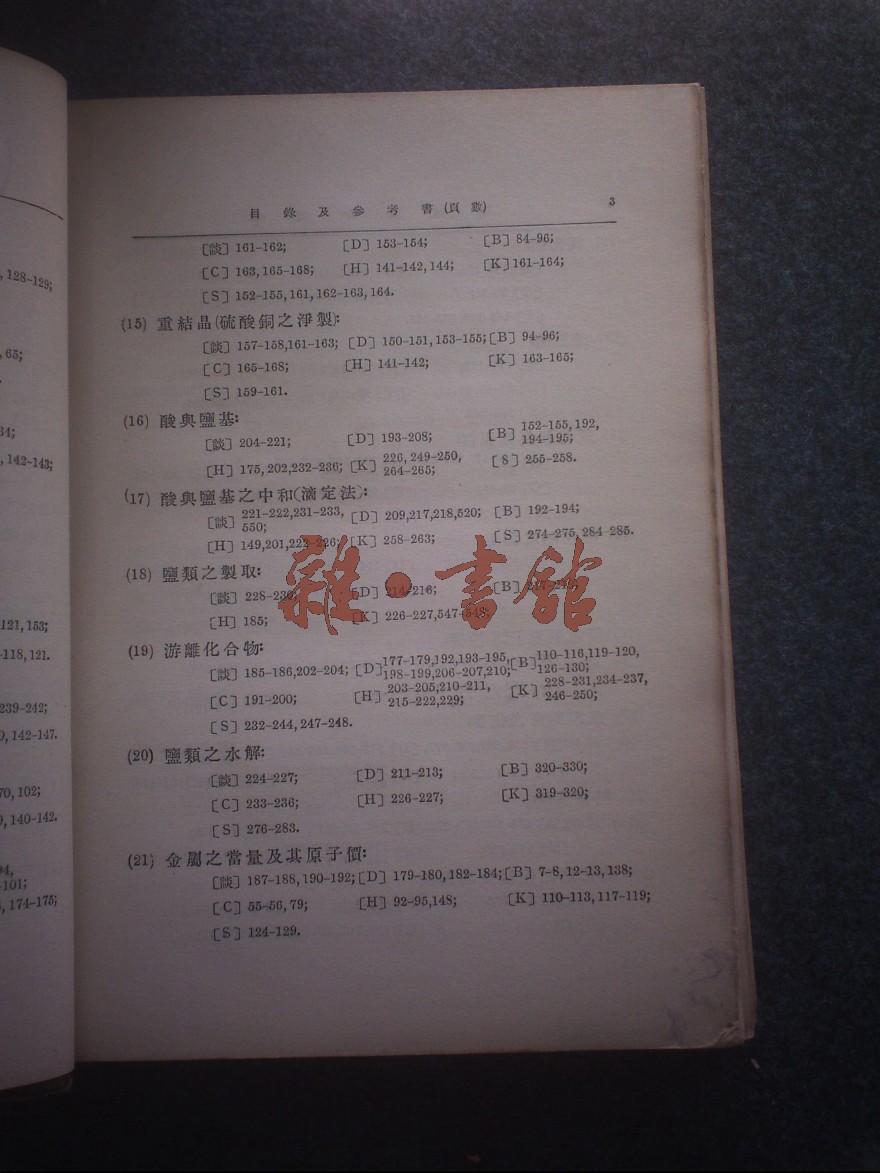 目錄及參考書(頁數) 3
[談] 161-162; [D] 153-154; [B] 84-96;
[C] 163,165-168; [H] 141-142,144; [K] 161-164;
[S] 152-155,161,162-163,164.
(15) 重結晶(硫酸銅之淨製):
[談] 157-158,161-163; [D] 150-151,153-155; [B] 94-96;
[C] 165-168; [H] 141-142; [K] 163-165;
[S] 159-161.
(16) 酸與鹽基:
[談] 204-221; [D] 193-208; [B] 152-155,192,194-195;
[H] 175,202,232-236; [K] 226,249-250,264-265; [S] 255-258.
(17) 酸與鹽基之中和(滴定法):
[談] 221-222,231-233,550; [D] 209,217,218,520; [B] 192-194;
[H] 149,201,222-226; [K] 258-263; [S] 274-275,284-285.
(18) 鹽類之製取:
[談] 228-230; [D] 214-216; [B]
[H] 185; [K] 226-227,547-548;
(19) 游離化合物:
[談] 185-186,202-204; [D] 177-179,192,193-195,198-199,206-207,210; [B] 110-116,119-120,126-130;
[C] 191-200; [H] 203-205,210-211,215-222,229; [K] 228-231,234-237,246-250;
[S] 232-244,247-248.
(20) 鹽類之水解:
[談] 224-227; [D] 211-213; [B] 320-330;
[C] 233-236; [H] 226-227; [K] 319-320;
[S] 276-283.
(21) 金屬之當量及其原子價:
[談] 187-188,190-192; [D] 179-180,182-184; [B] 7-8,12-13,138;
[C] 55-56,79; [H] 92-95,148; [K] 110-113,117-119;
[S] 124-129.
雜·書館
,128-129;
,65;
,142-143;
121,153;
-118,121.
239-242;
,142-147.
70,102;
,140-142.
-101;
,174-175;